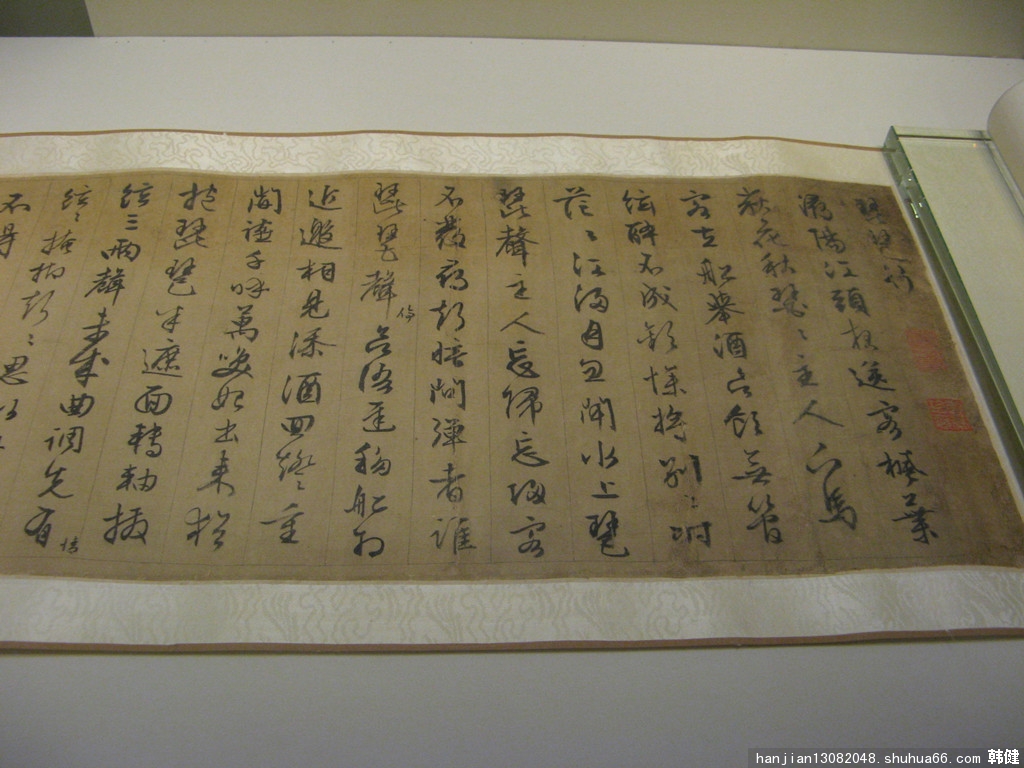 琵琶行
潯陽江頭夜送客楓葉
荻花秋瑟〻主人下馬
客在船舉酒欲飲無管
絃醉不成歡慘將別〻時
茫〻江浸月忽聞水上琵
琶聲主人忘歸客
不發尋聲暗問彈者誰
琵琶聲停欲語遲移船相
近邀相見添酒回燈重
開宴千呼萬喚始出來猶
抱琵琶半遮面轉軸撥
絃三兩聲未成曲調先有情
絃〻掩抑聲〻思
不得
hanjian13082048. shuhua66. com 韩健